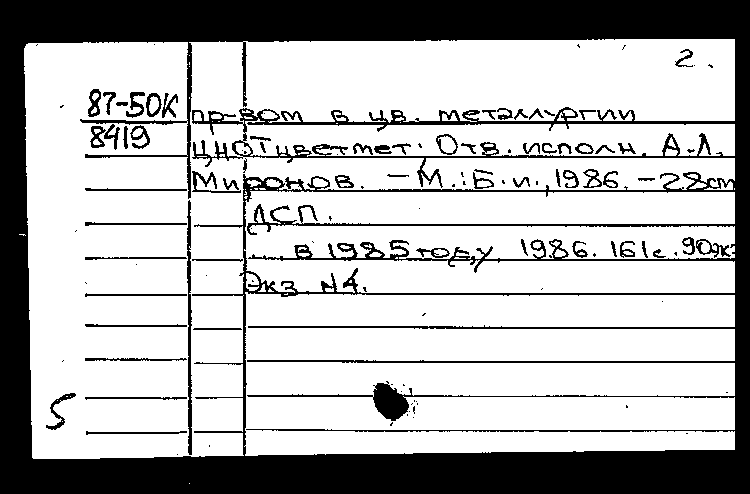 2.
87-50К пр-вом в цв. металлургии
8419 ЦНОТцветмет. Отв. исполн. А.Л.
Миронов. – М.: Б.и., 1986. – 28см
ДСП.
... в 1985 году. 1986. 161с. 90экз
Экз. N4.
5